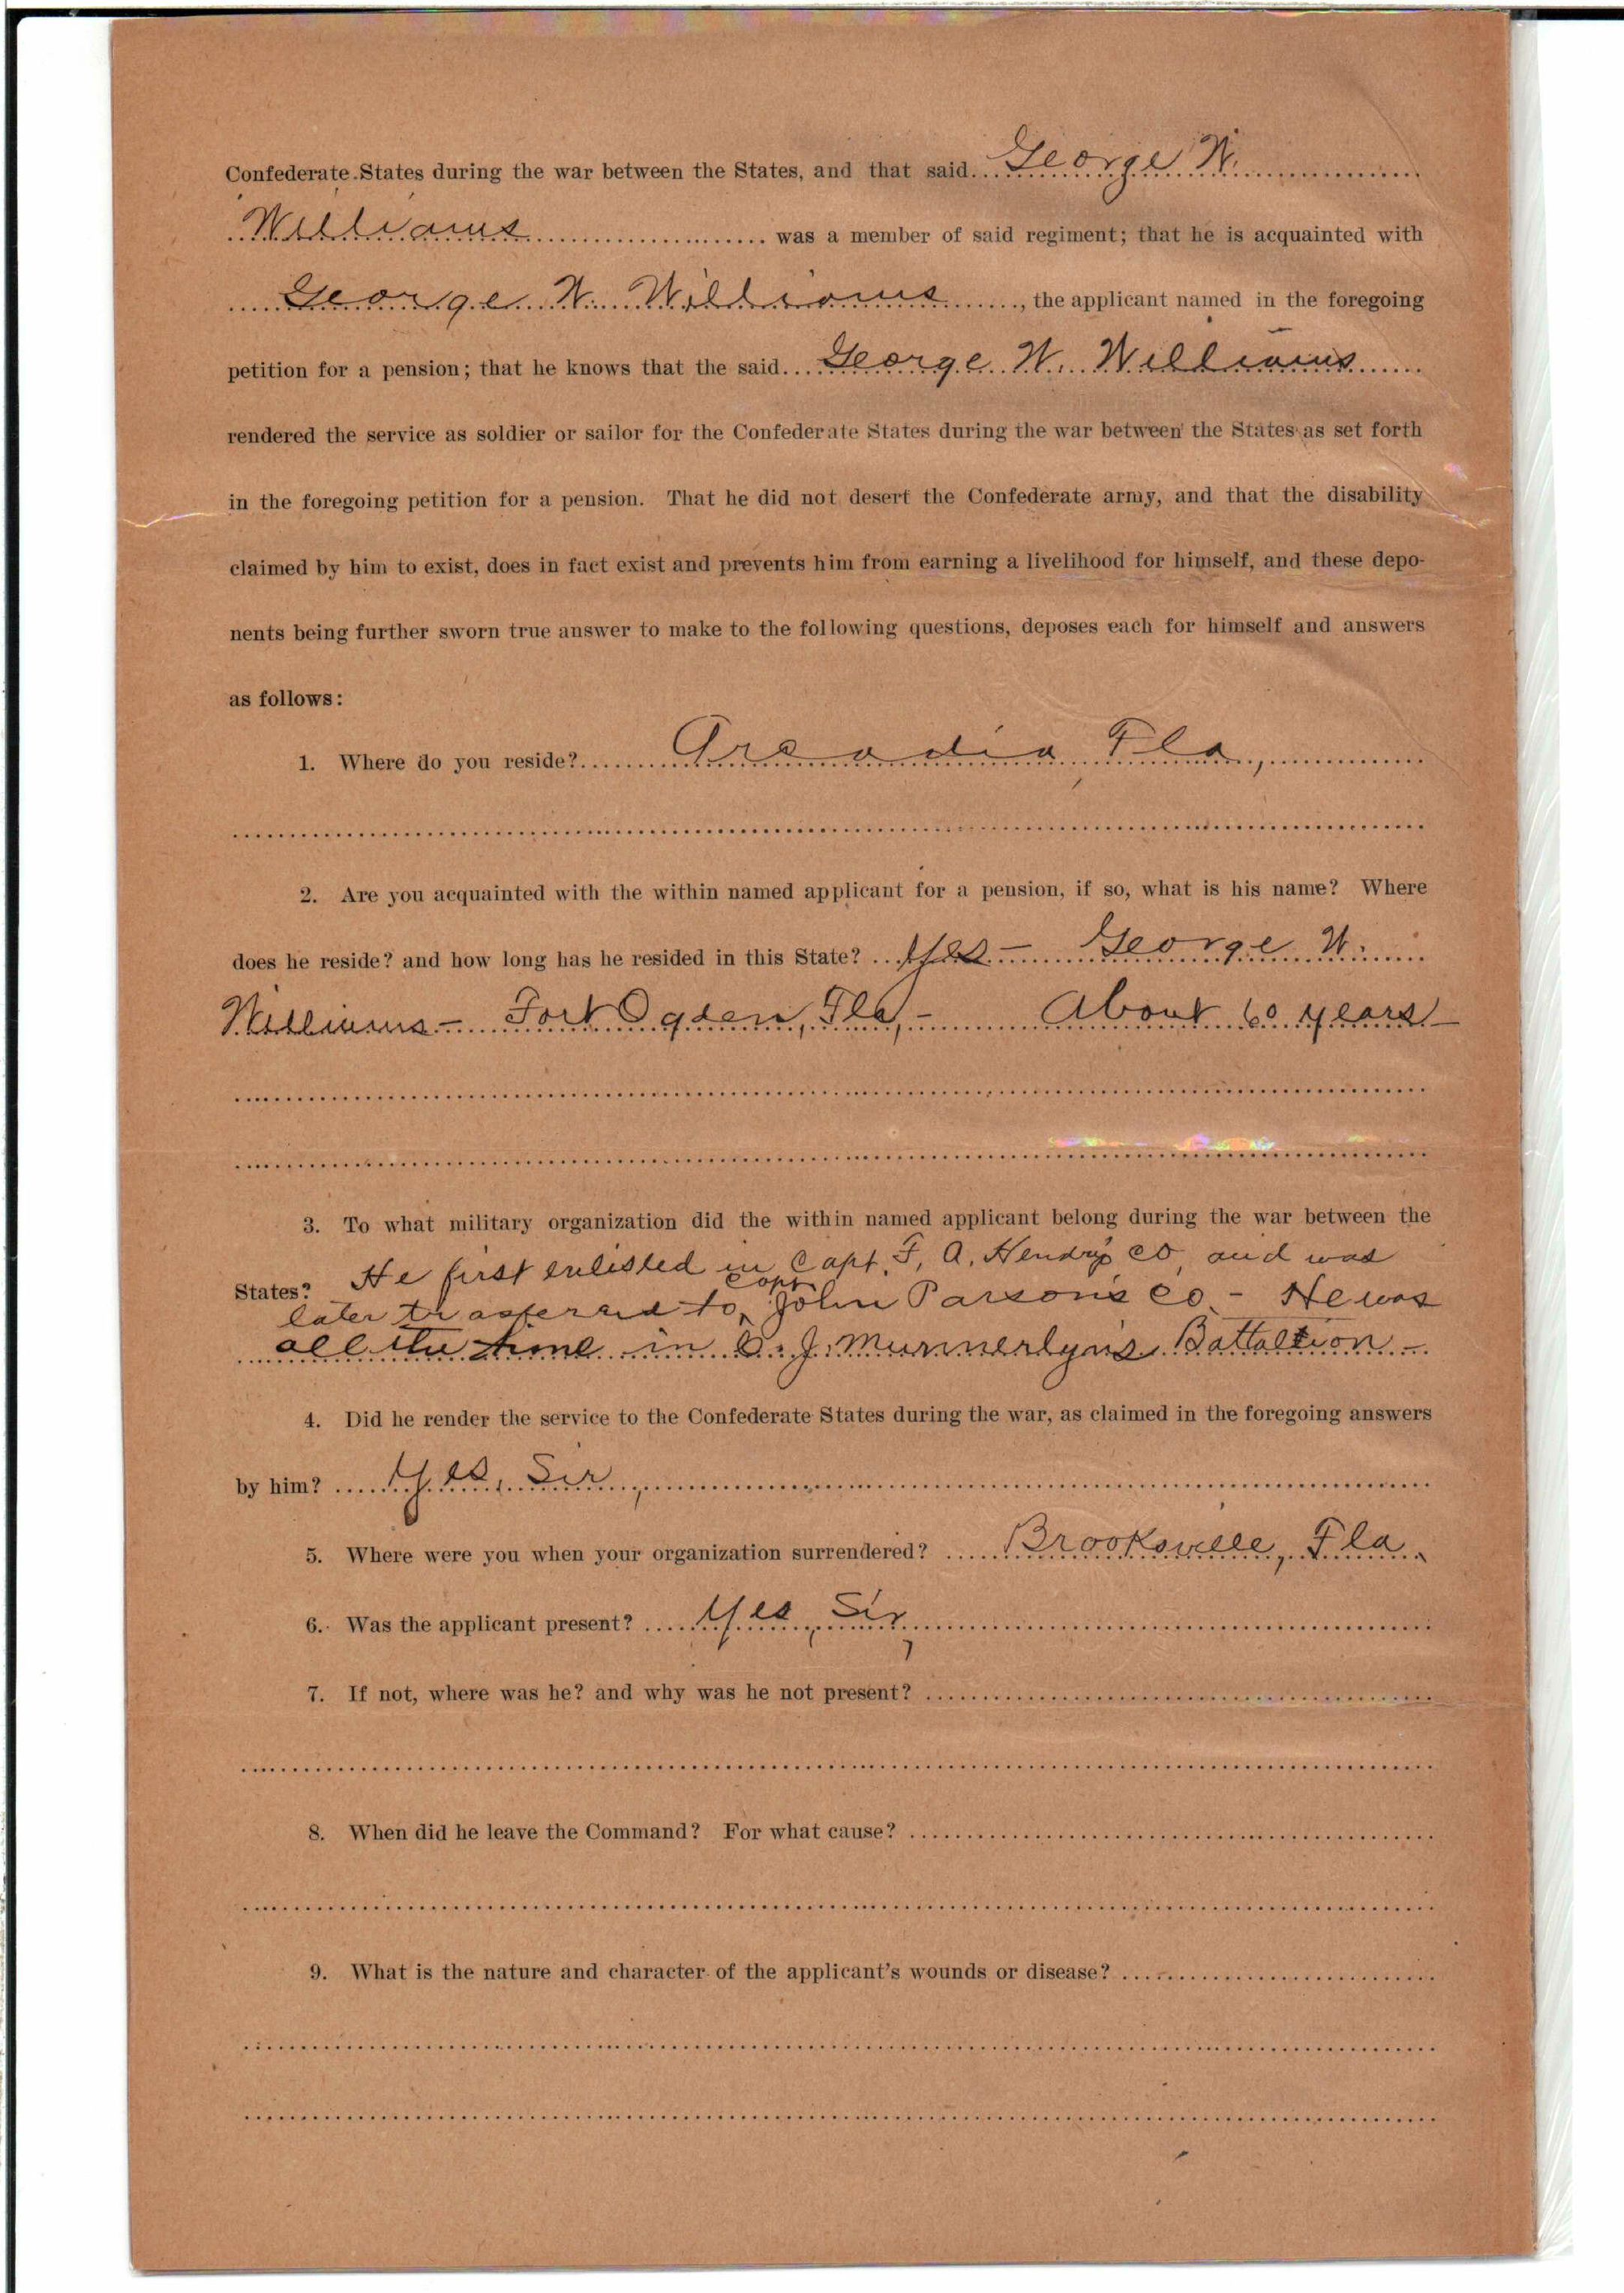 Confederate States during the war between the States, and that said George W.
Williams was a member of said regiment; that he is acquainted with
George W. Williams, the applicant named in the foregoing
petition for a pension; that he knows that the said George W. Williams
rendered the service as soldier or sailor for the Confederate States during the war between the States as set forth
in the foregoing petition for a pension. That he did not desert the Confederate army, and that the disability
claimed by him to exist, does in fact exist and prevents him from earning a livelihood for himself, and these depo-
nents being further sworn true answer to make to the following questions, deposes each for himself and answers
as follows:
1. Where do you reside? Arcadia, Fla,
2. Are you acquainted with the within named applicant for a pension, if so, what is his name? Where
does he reside? and how long has he resided in this State? Yes - George W.
Williams - Fort Ogden, Fla, - About 60 years -
3. To what military organization did the within named applicant belong during the war between the
States? He first enlisted in Capt. F. A. Hendry's Co, and was
later trasferred to Capt John Parson's Co. - He was
all the time in C. J. Munnerlyn's Battalion -
4. Did he render the service to the Confederate States during the war, as claimed in the foregoing answers
by him? Yes, Sir,
5. Where were you when your organization surrendered? Brooksville, Fla.
6. Was the applicant present? Yes, Sir,
7. If not, where was he? and why was he not present?
8. When did he leave the Command? For what cause?
9. What is the nature and character of the applicant's wounds or disease?